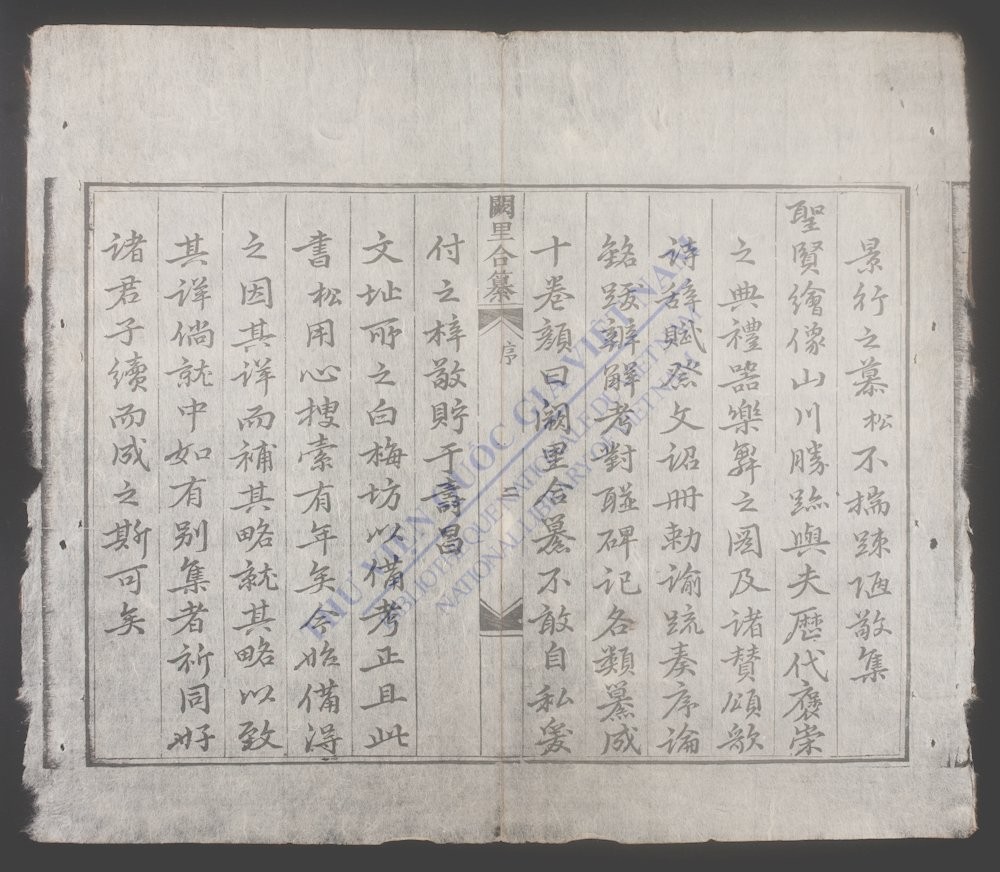 景行之慕松不揣踈陋敬集
聖賢繪像山川勝跡與夫歷代褒崇
之典禮器樂舞之圖及諸贊頌歌
詩辞賦祭文詔冊勅諭疏奏序論
銘跋辨解考對聯碑記各類纂成
十卷顔曰闕里合纂不敢自私爰
闕里合纂
序
二
付之梓敬貯于壽昌
文址所之白梅坊以備考正且此
書松用心搜索有年矣今始備得
之因其详而補其略就其略以致
其详倘就中如有别集者祈同好
诸君子續而成之斯可矣
THƯ VIỆN QUỐC GIA VIỆT NAM
BIBLIOTHEQUE NATIONALE DU VIETNAM
NATIONAL LIBRARY OF VIETNAM